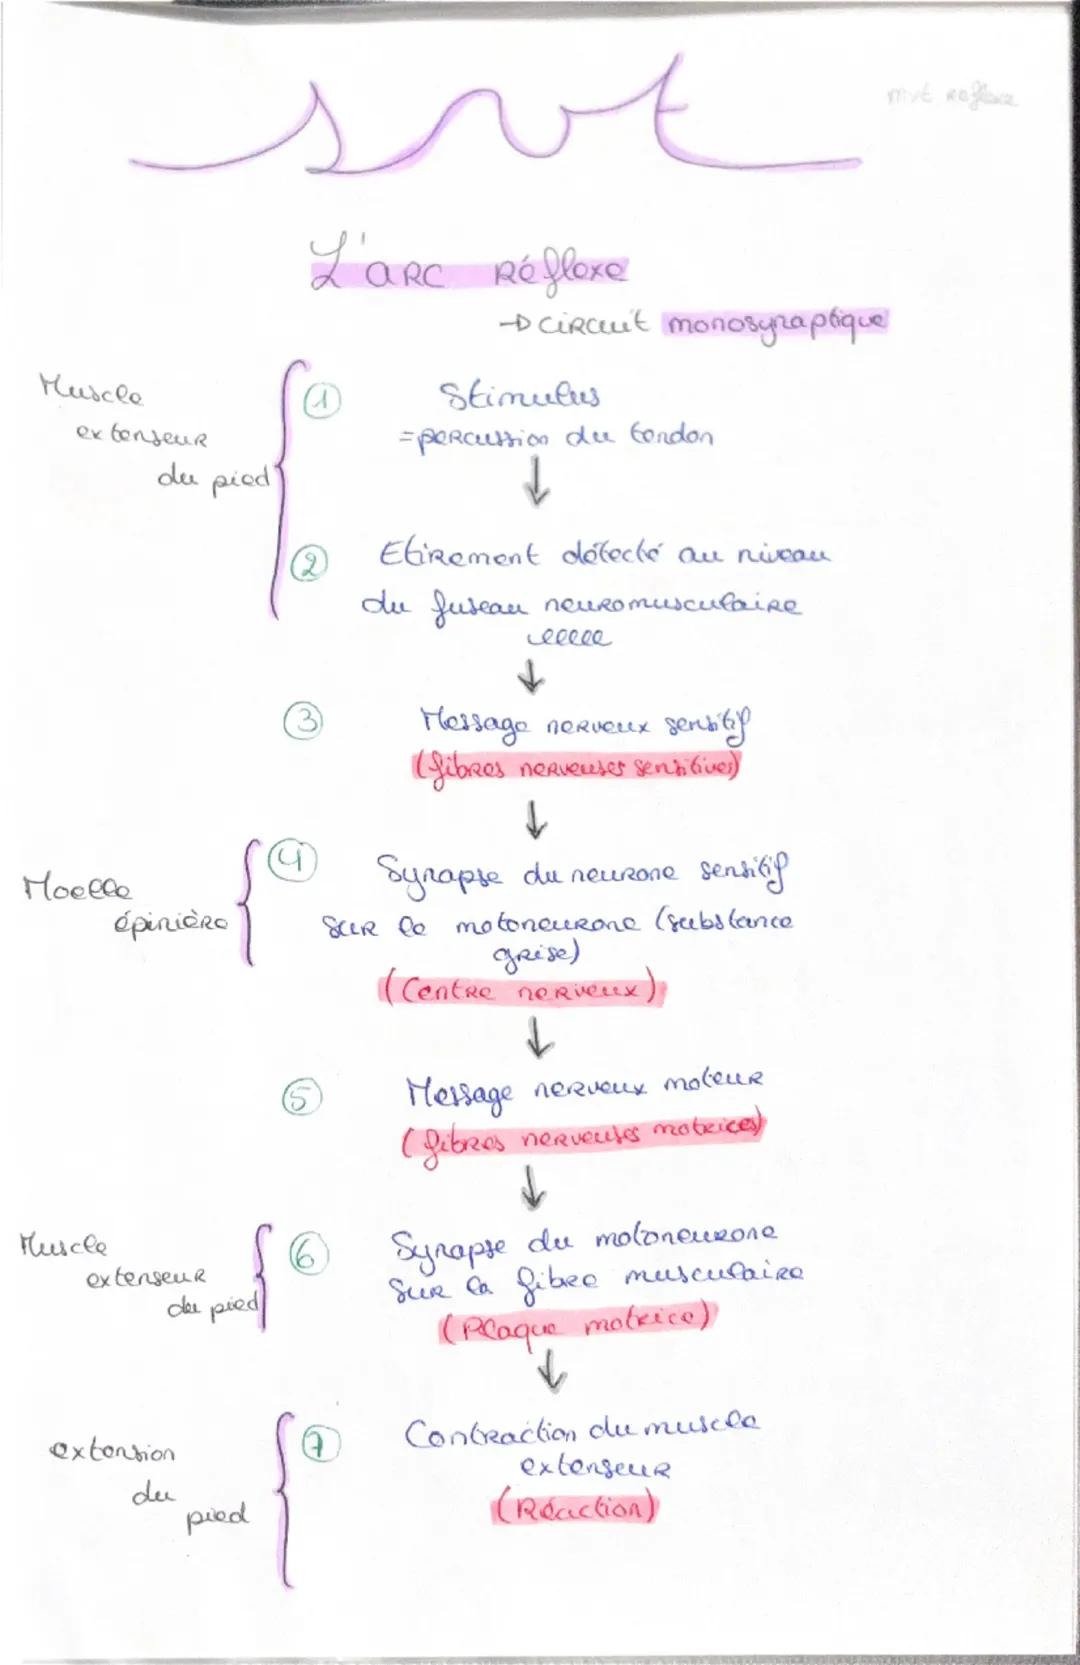 svt
mvt Réflexe
L'arc Réflexe
→ circuit monosynaptique
Muscle
extenseur
du pied
1
Stimulus
= percussion du tendon
↓
2
Etirement détecté au niveau
du fuseau neuromusculaire
↓
3
Message nerveux sensitif
(fibres nerveuses sensitives)
↓
Moelle
épinière
4
Synapse du neurone sensitif
sur le motoneurone (substance
grise)
(Centre nerveux)
↓
5
Message nerveux moteur
(fibres nerveuses motrices)
↓
Muscle
extenseur
du pied
6
Synapse du motoneurone
sur la fibre musculaire
(Plaque motrice)
↓
extension
du
pied
7
Contraction du muscle
extenseur
(Réaction)